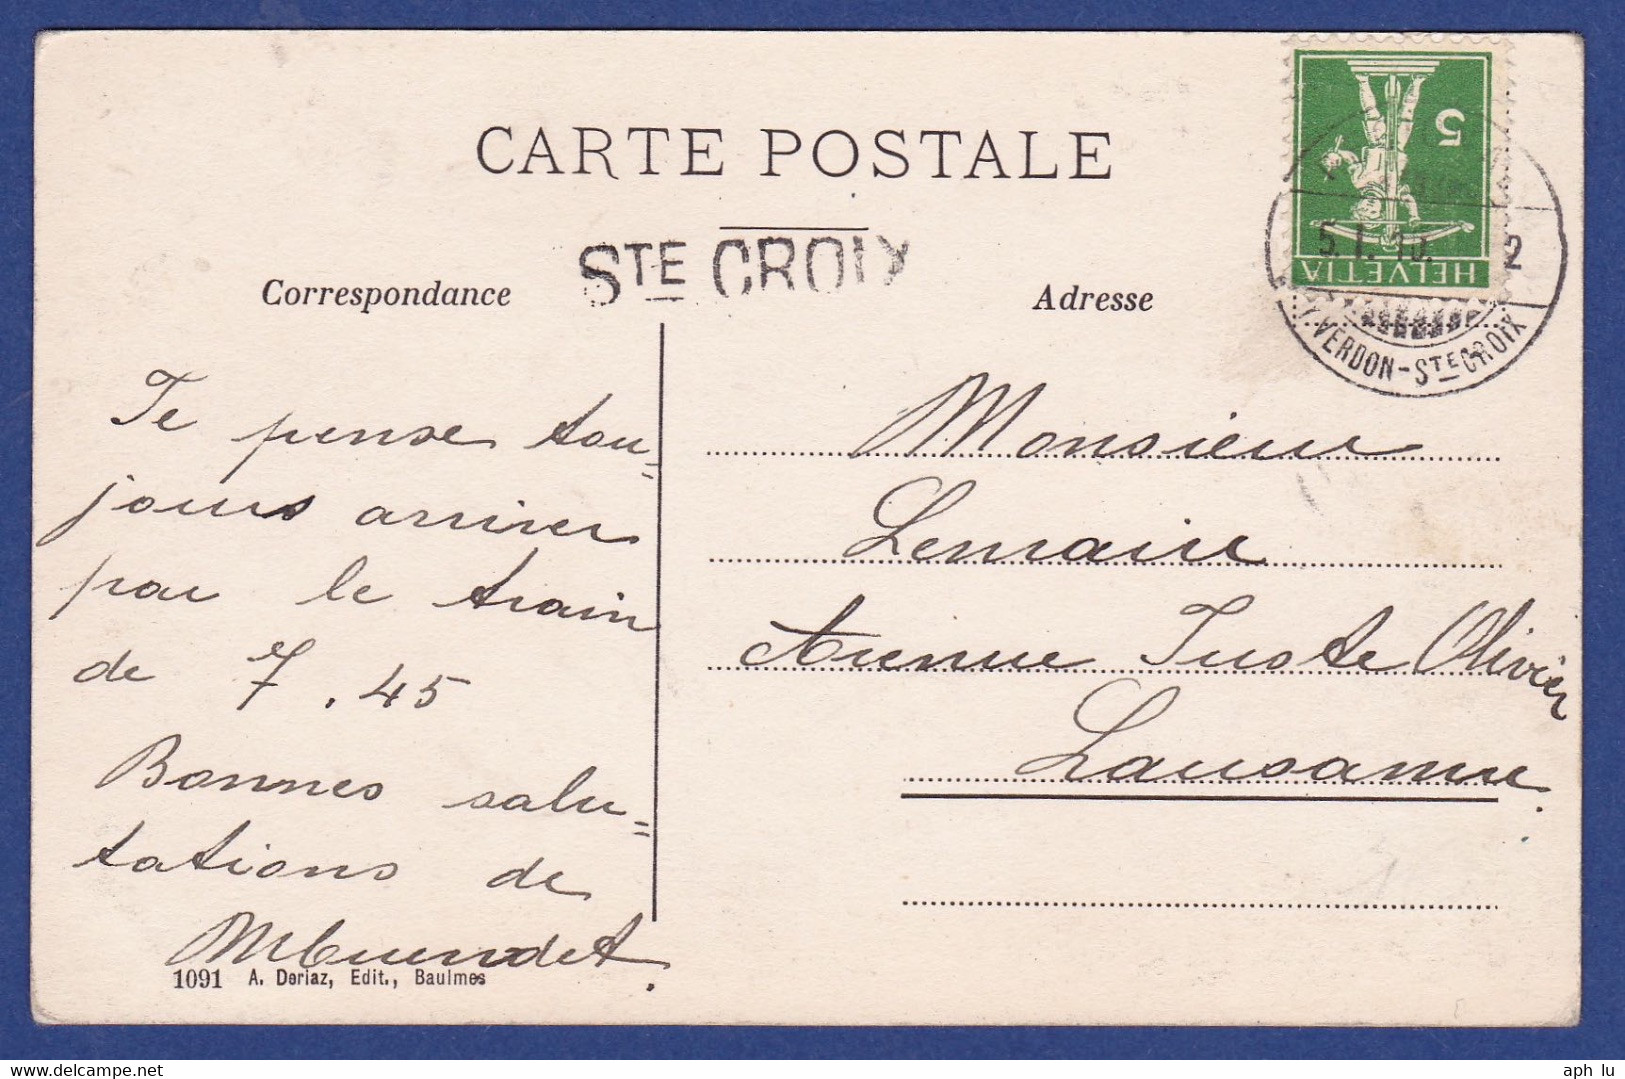 CARTE POSTALE
STE CROIX
Correspondance
Adresse
HELVETIA
5
2
YVERDON-STE CROIX
Je pense tou=
jours arriver
par le train
de 7.45
Bonnes salu=
tations de
Monsieur
Lemaire
Avenue Juste Olivier
Lausanne.
1091 A. Deriaz, Edit., Baulmes
aph lu